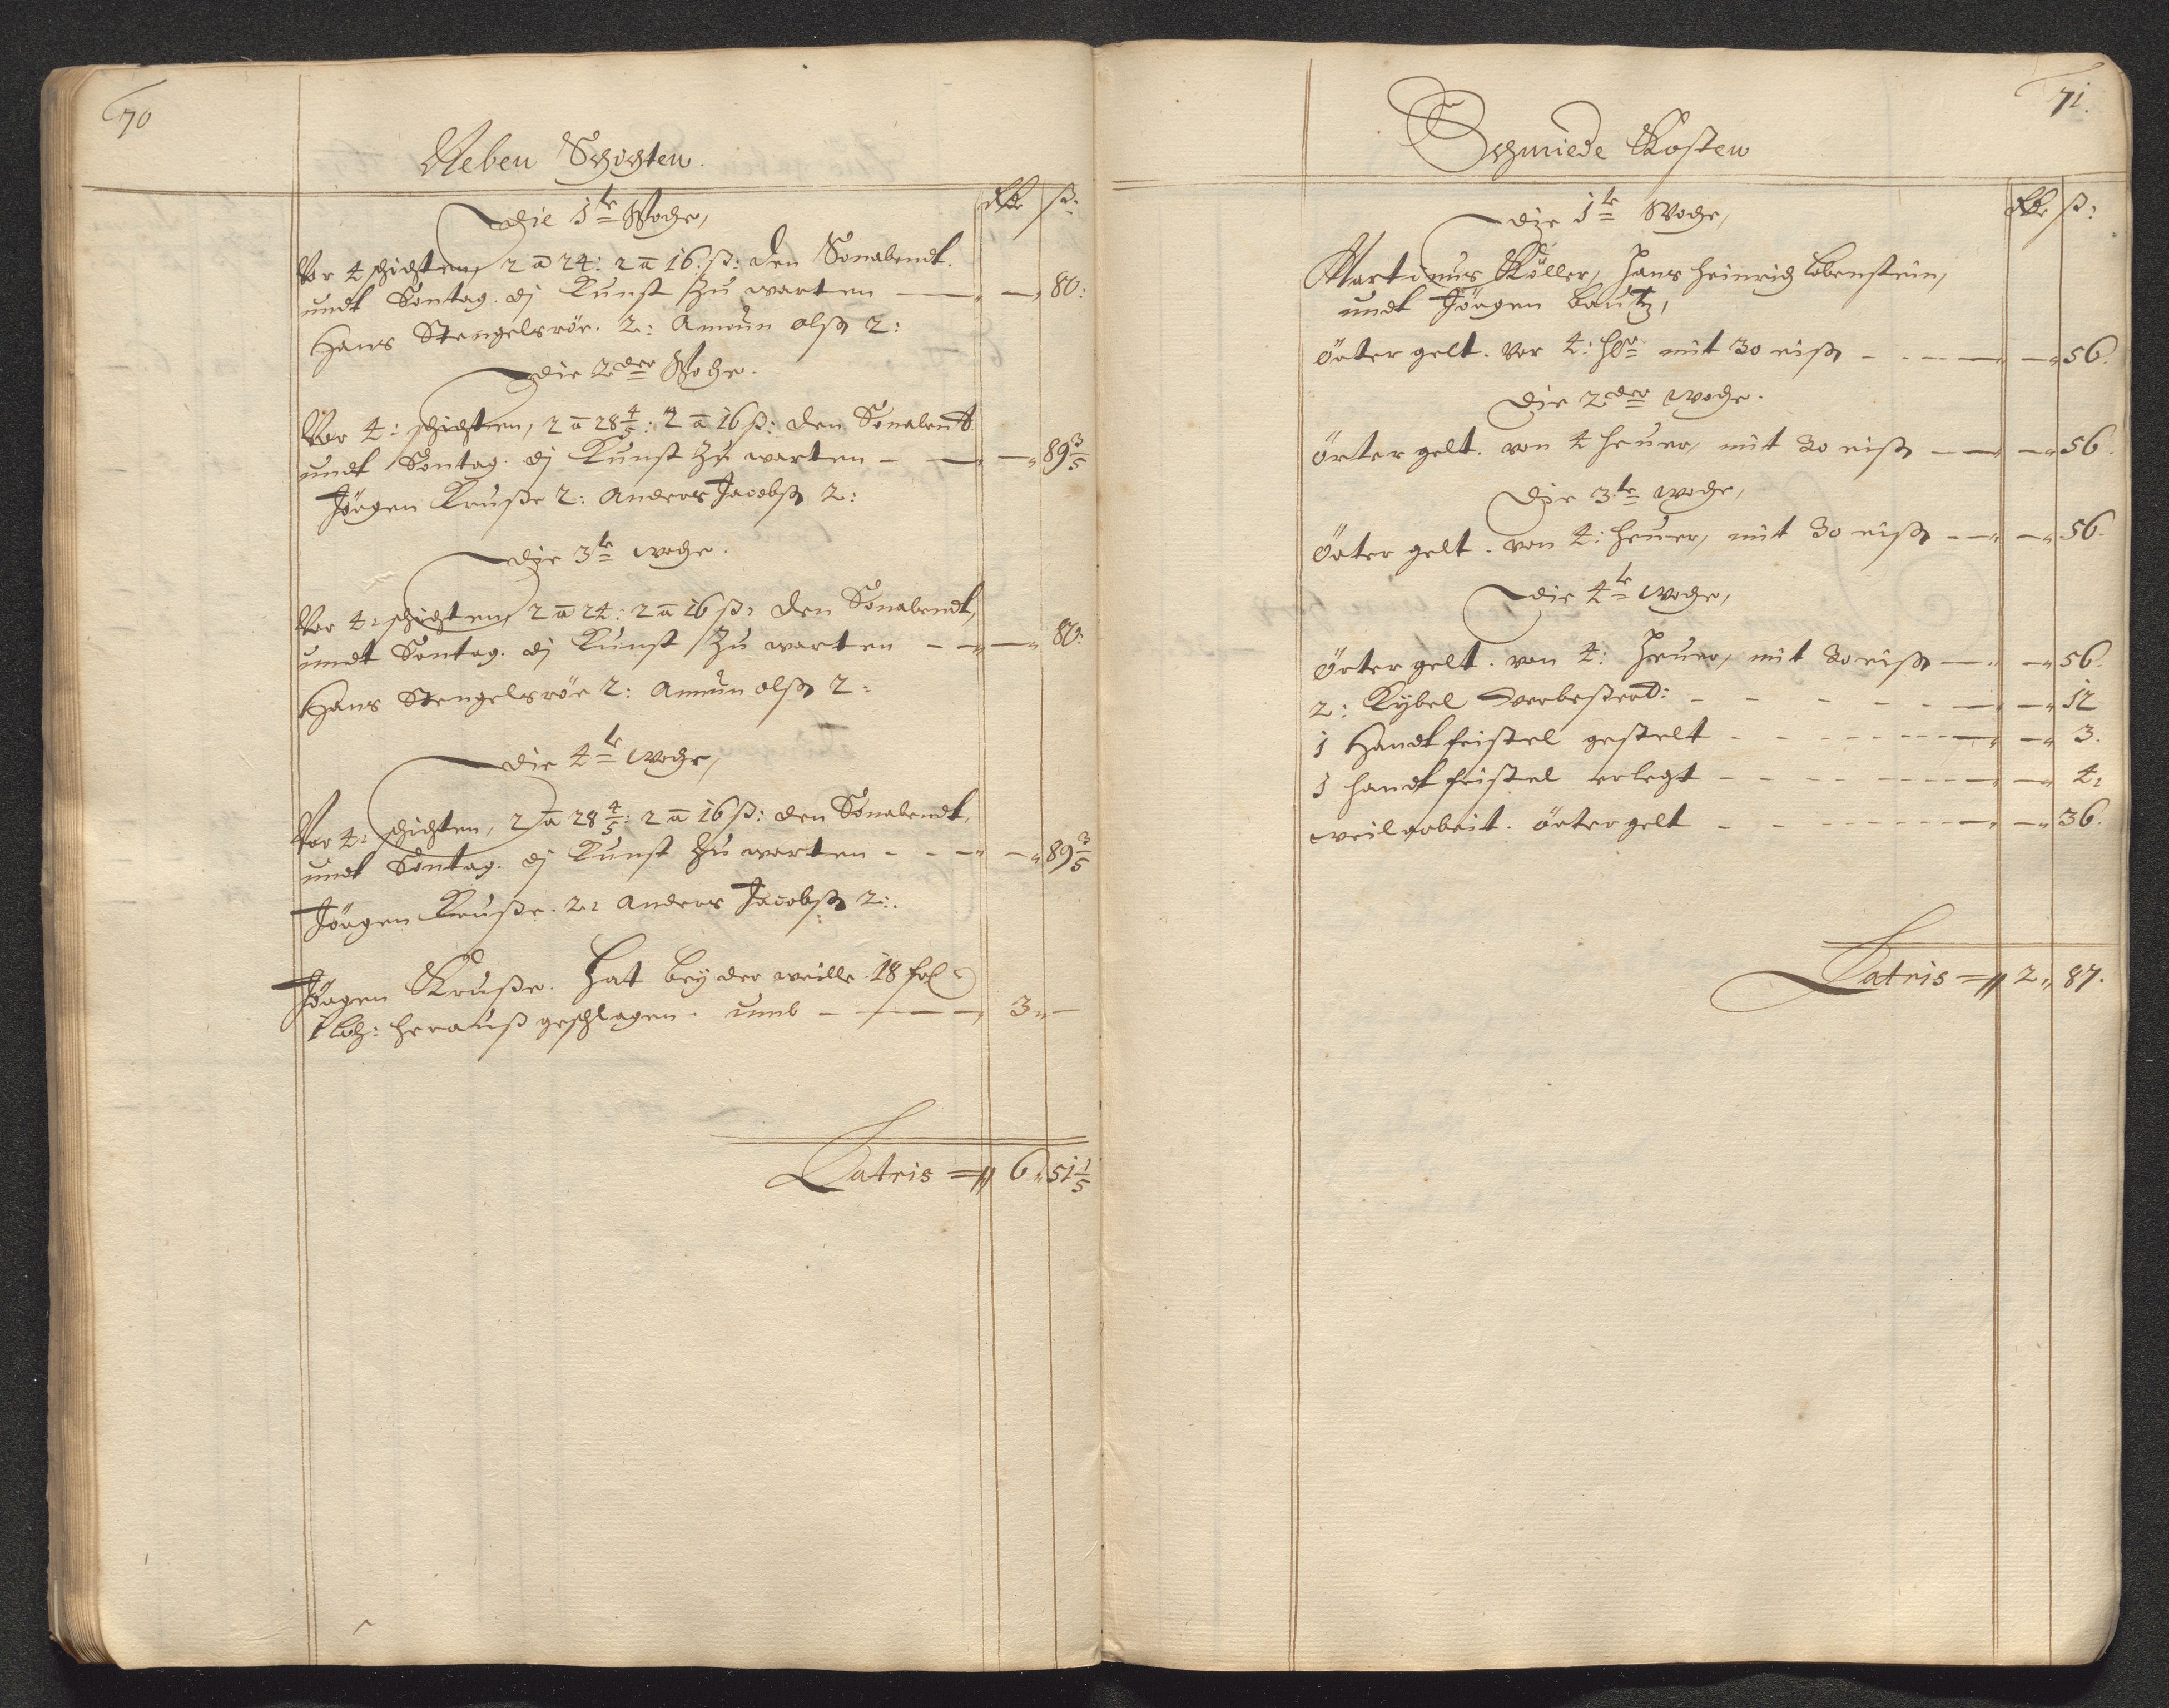 70
Neben Schichten.
Rdr ß:
Die 1te Woche,
Vor 4 schichten, 2 a 24: 2 a 16: ß: den Sonabendt.
undt Sontag. dj Kunst zu warten — — 80:
Hans Stengelsröe. 2: Amun olß 2:
Die 2der Woche.
Vor 4: schichten, 2 a 28 4/5: 2 a 16 ß: den Sonabendt
undt Sontag. dj Kunst zu warten — — 89 3/5
Jörgen Kruße 2: Anders Jacobß 2:
Die 3te woche.
Vor 4: schichten, 2 a 24: 2 a 16 ß: den Sonabendt,
undt Sontag. dj Kunst zu warten — — 80:
Hans Stengelsröe 2: Amun olß 2:
Die 4te woche,
Vor 4: schichten, 2 a 28 4/5: 2 a 16 ß: den Sonabendt,
undt Sontag. dj Kunst zu warten — — 89 3/5
Jörgen Kruße. 2: Anders Jacobß 2:.
Jörgen Kruße. Hat bey der weille 18
herauß geschlagen. umb — 3 —
Latris = 6 51 1/5
71.
Schmiede Kosten
Rdr ß:
Die 1te Woche,
Martinus Köller, Hans Heinrich Lobenstein,
undt Jörgen Bautz,
örter gelt. Vor 4: mit 30 eiß — — 56.
Die 2der woche.
örter gelt. von 4 heuer, mit 30 eiß — — 56.
Die 3te woche,
örter gelt. von 4: heuer, mit 30 eiß — — 56.
Die 4te woche,
örter gelt. von 4: heuer, mit 30 eiß — — 56.
2: Kybel verbeßerd: — — 12
1 Handtfeistel gestelt — — 3.
1 handtfeistel erlegt — — 4:
weilarbeit. örter gelt — — 36.
Latris = 2 87.